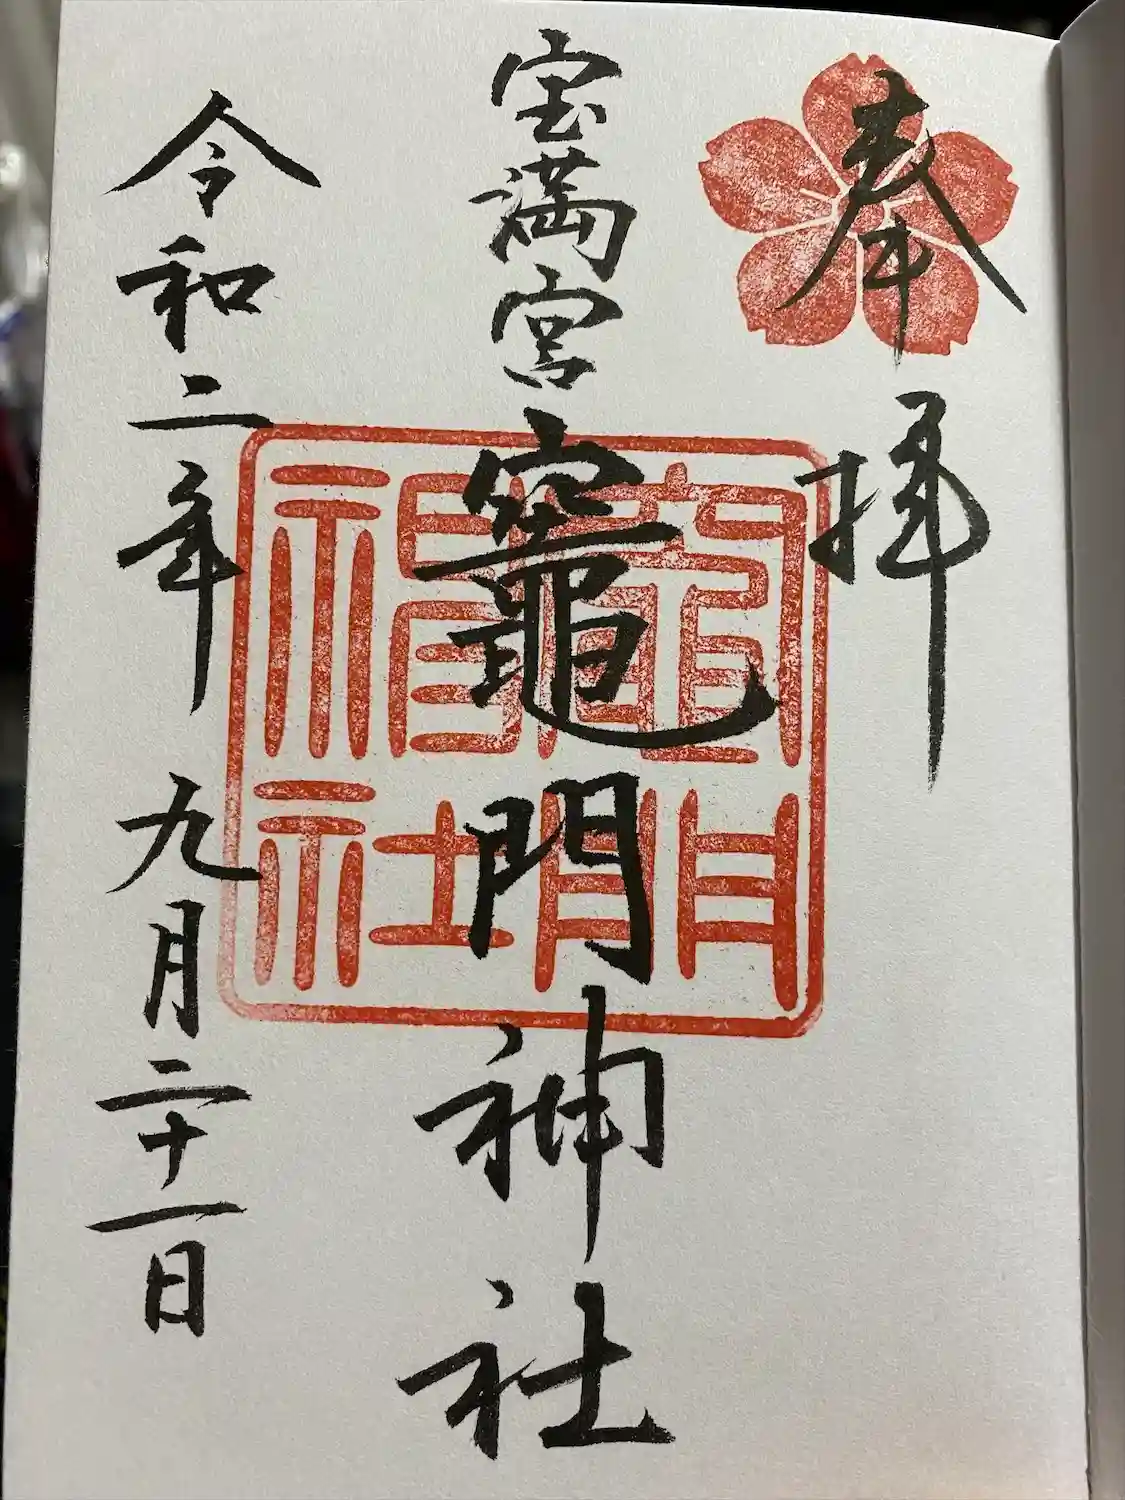 奉拝
宝満宮竈門神社
竈門
神社
令和二年九月二十一日